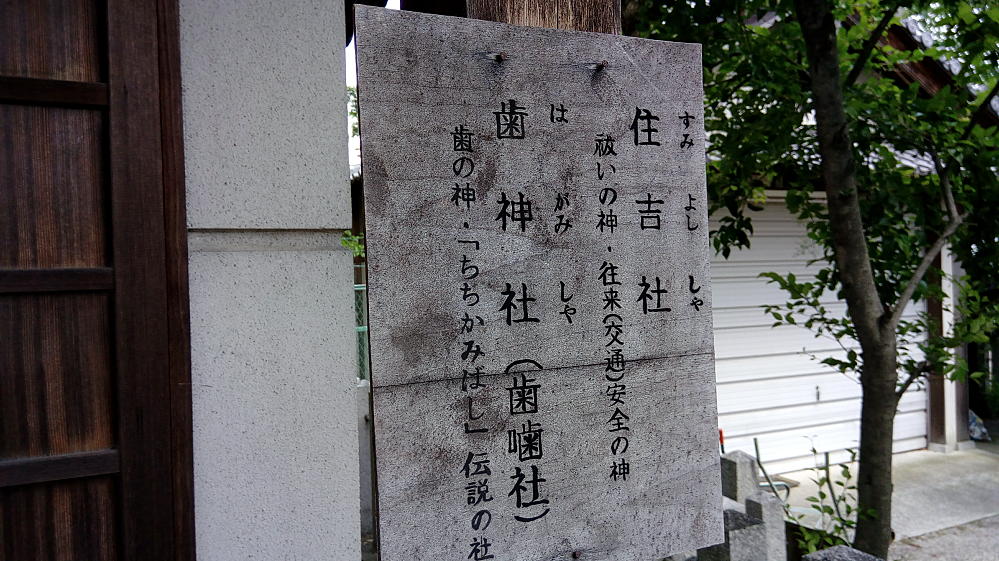 すみ よし しゃ
住吉社
祓いの神・往来(交通)安全の神
は がみ しゃ
歯神社(歯噛社)
歯の神・「ちちかみばし」伝説の社